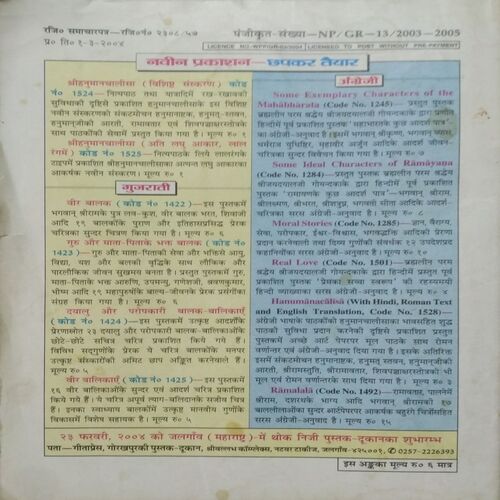 रजि० समाचारपत्र—रजि०नं० २३०८/५७
पंजीकृत-संख्या—NP/GR-13/2003-2005
प्र० ति० १-३-२००४
LICENCE NO.-WPP/GR-03/2004 | LICENSED TO POST WITHOUT PRE-PAYMENT
नवीन प्रकाशन—छपकर तैयार
श्रीहनुमानचालीसा (विशिष्ट संस्करण) कोड
नं० 1524—नित्यपाठ तथा यात्रादिमें रख-रखावकी
सुविधाकी दृष्टिसे प्रकाशित हनुमानचालीसाके इस विशिष्ट
नवीन संस्करणको संकटमोचन हनुमानाष्टक, हनुमत्-स्तवन,
हनुमान्‌जीकी आरती, रामावतार एवं शिवपञ्चाक्षरस्तोत्रके
साथ पाठकोंकी सेवामें प्रस्तुत किया गया है। मूल्य रु० १
श्रीहनुमानचालीसा (अति लघु आकार, लाल
रंगमें) कोड नं० 1525—नित्यपाठके लिये लालरंगके
टाइपमें प्रकाशित श्रीहनुमानचालीसाका अत्यन्त लघु आकारका
आकर्षक नवीन संस्करण। मूल्य रु० १
गुजराती
वीर बालक (कोड नं० 1422)—इस पुस्तकमें
भगवान् श्रीरामके पुत्र लव-कुश, वीर बालक भरत, शिवाजी
आदि १९ बालकोंके पुराण और इतिहासप्रसिद्ध प्रेरक
चरित्रका सुन्दर चित्रण किया गया है। मूल्य रु० ६
गुरु और माता-पिताके भक्त बालक (कोड नं०
1423)—गुरु और माता-पिताकी सेवा और भक्तिसे आयु,
विद्या, यश और बलकी वृद्धिके साथ लौकिक और
पारलौकिक जीवन सुखमय बनता है। प्रस्तुत पुस्तकमें गुरु,
माता-पिताके भक्त आरुणि, उपमन्यु, गणेशजी, श्रवणकुमार,
भीष्म आदि १९ महापुरुषोंके बाल्य-जीवनके प्रेरक प्रसंगोंका
संग्रह किया गया है। मूल्य रु० ६
दयालु और परोपकारी बालक-बालिकाएँ
(कोड नं० 1424)—इस पुस्तकमें उत्कृष्ट आदर्शोंके
प्रेरणास्पद २३ दयालु और परोपकारी बालक-बालिकाओंके
छोटे-छोटे सचित्र चरित्र प्रकाशित किये गये हैं।
विविध सद्गुणोंके प्रेरक ये चरित्र बालकोंके मनपर
उत्कृष्ट संस्कारोंकी अमिट छाप अङ्कित करनेवाले हैं।
मूल्य रु० ५
वीर बालिकाएँ (कोड नं० 1425)—इस पुस्तकमें
१६ वीर बालिकाओंके सुन्दर एवं आदर्श चरित्र प्रकाशित
किये गये हैं। ये चरित्र अपूर्व त्याग-बलिदानके सजीव चित्र
हैं। इनका स्वाध्याय बालकोंमें उत्कृष्ट मानवीय गुणोंके
विकासमें विशेष सहायक है। मूल्य रु० ५
अंग्रेजी
Some Exemplary Characters of the
Mahābhārata (Code No. 1245)— प्रस्तुत पुस्तक
ब्रह्मलीन परम श्रद्धेय श्रीजयदयालजी गोयन्दकाके द्वारा प्रणीत
हिन्दीमें पूर्व प्रकाशित पुस्तक 'महाभारतके कुछ आदर्श पात्र'-
का अंग्रेजी-अनुवाद है। इसमें भगवान् श्रीकृष्ण, भगवान् व्यास,
धर्मराज युधिष्ठिर, महावीर अर्जुन आदिके आदर्श जीवन-
चरित्रका सुन्दर विवेचन किया गया है। मूल्य रु० ७
Some Ideal Characters of Rāmāyaṇa
(Code No. 1284)— प्रस्तुत पुस्तक ब्रह्मलीन परम श्रद्धेय
श्रीजयदयालजी गोयन्दकाके द्वारा हिन्दीमें पूर्व प्रकाशित
पुस्तक 'रामायणके कुछ आदर्श पात्र'—भगवान् श्रीराम,
श्रीलक्ष्मण, श्रीभरत, श्रीशत्रुघ्न, भगवती सीता आदिके आदर्श-
चरित्रका सरस अंग्रेजी-अनुवाद है। मूल्य रु० ८
Moral Stories (Code No. 1285)— ज्ञान, वैराग्य,
सेवा, परोपकार, ईश्वर-विश्वास, भगवद्भक्ति आदिकी प्रेरणा
प्रदान करनेवाली तथा दिव्य गुणोंकी संवर्धक १२ उपदेशप्रद
कहानियोंका सरस अंग्रेजी-अनुवाद। मूल्य रु० १०
Real Love (Code No. 1501)— ब्रह्मलीन परम
श्रद्धेय श्रीजयदयालजी गोयन्दकाके द्वारा हिन्दीमें प्रस्तुत पूर्व
प्रकाशित पुस्तक 'प्रेमका सच्चा स्वरूप' की रहस्यमयी
हिन्दी व्याख्याका सरस अंग्रेजी-अनुवाद। मूल्य रु० ४
Hanumānacālīsā (With Hindi, Roman Text
and English Translation, Code No. 1528)—
अंग्रेजी भाषाके पाठकोंको हनुमानचालीसाका भावसहित शुद्ध
पाठकी सुविधा प्रदान करनेकी दृष्टिसे प्रकाशित प्रस्तुत
पुस्तकमें अच्छे आर्ट पेपरपर मूल पाठके साथ रोमन
वर्णान्तर एवं अंग्रेजी-अनुवाद दिया गया है। इसके अतिरिक्त
इसमें संकटमोचन हनुमानाष्टक, हनुमत् स्तवन, हनुमान्‌जीकी
आरती, श्रीरामस्तुति, श्रीरामावतार, शिवपञ्चाक्षरस्तोत्रको भी
मूल एवं रोमन वर्णान्तरके साथ दिया गया है। मूल्य रु० ३
Rāmalalā (Code No. 1492)—रामावतार, पालनेमें
श्रीराम, दशरथके भाग्य आदि भगवान् श्रीरामकी १०
बाललीलाओंका सुन्दर आर्टपेपरपर आकर्षक बहुरंगे चित्रोंसहित
सरस अंग्रेजी-अनुवाद। मूल्य रु० १५
२३ फरवरी, २००४ को जलगाँव (महाराष्ट्र)-में थोक निजी पुस्तक-दूकानका शुभारम्भ
पता—गीताप्रेस, गोरखपुरकी पुस्तक-दूकान, श्रीवल्लभ कॉम्प्लेक्स, नटवर टाकीज, जलगाँव-४२५००१, ✆ 0257-2226393
इस अङ्कका मूल्य रु० ६ मात्र